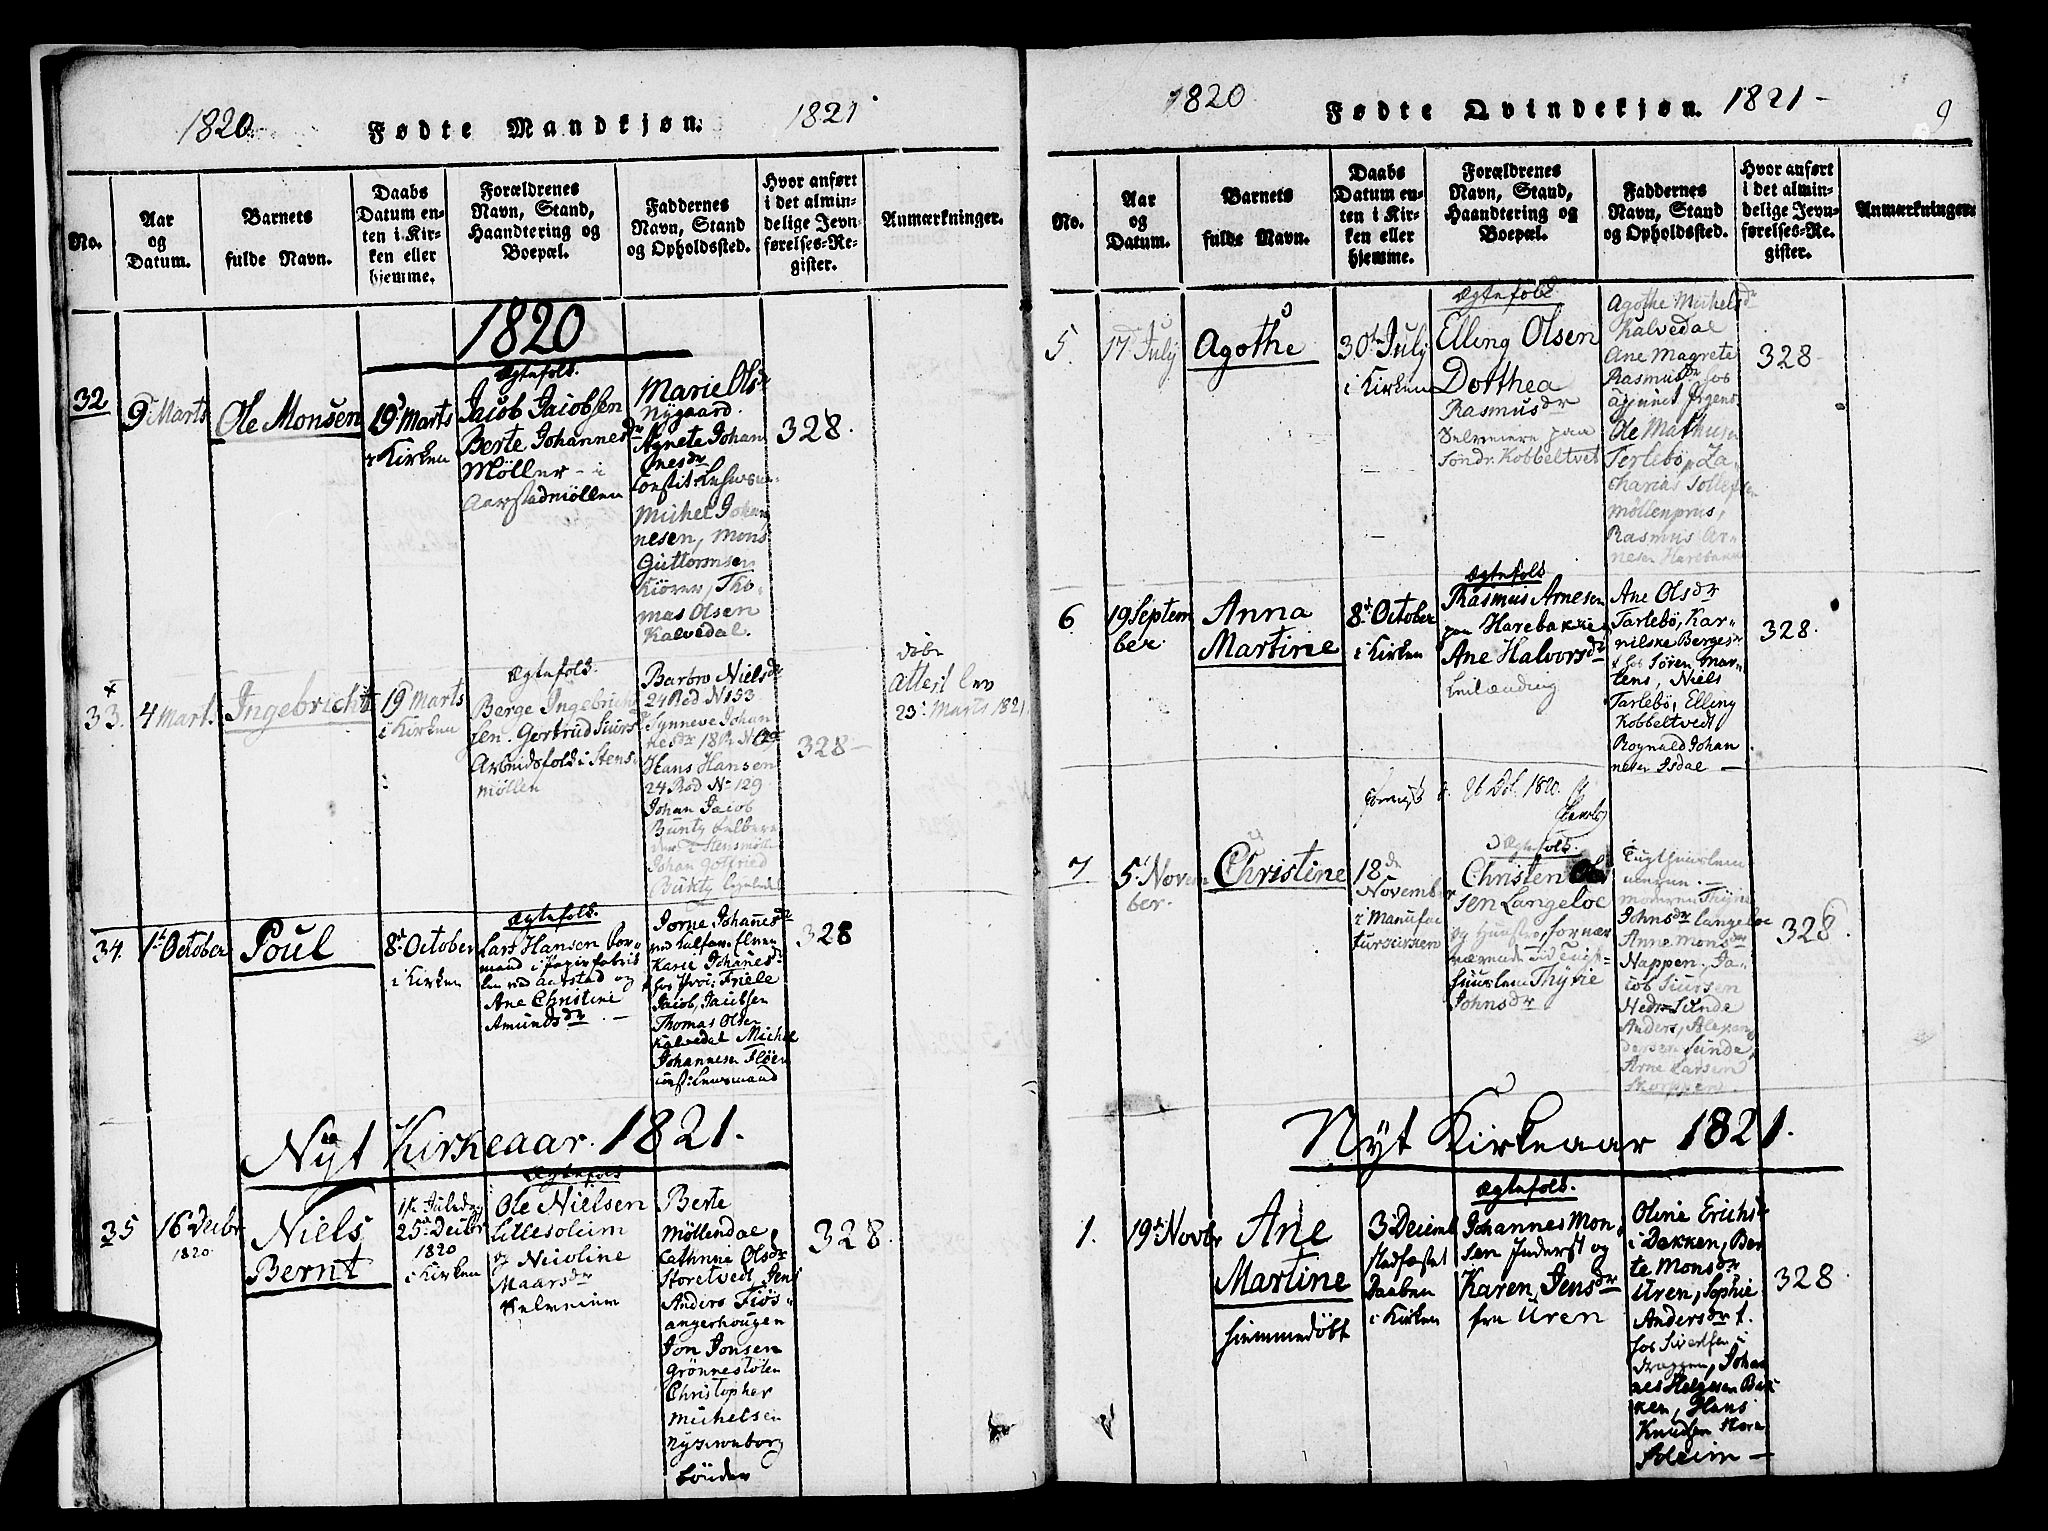 1820
Fødte Mandkjøn.
1821
No.
Aar
og
Datum.
Barnets
fulde Navn.
Daabs
Datum en-
ten i Kir-
ken eller
hjemme.
Forældrenes
Navn, Stand,
Haandtering og
Boepæl.
Faddernes
Navn, Stand
og Opholdssted.
Hvor anført
i det almin-
delige Jevn-
førelses-Re-
gister.
Anmærkninger.
1820
32
9de Marts
Ole Monsen
19de Marts
i Kirken
Ægtefolk.
Jacob Jacobsen
Berte Johannesdr
Møller - i
Aarstadmøllen
Marie Olsdr
Nygaard.
Agnete Johan
nesdr
Michel Johan
nesen, Mons
Guttormsen
Kiörer, Tho-
mas Olsen
Kalvedal.
328.
33.
4 Mart.
Ingebricht
19de Marts
i Kirken
Ægtefolk.
Berge Ingebricht
sen. Gertrud Siurs
Arbeidsfolk i Stens
møllen
Barbro Nielsdr
24 Rod N 153
Synneve Johan
nesdr 18 R N
Hans Hansen
24 Rod No 129
Johan Jacob
Bunty
der i Stensmöll
Johan Gotfried
328
döbe
Attest lev
23de Marts 1821
34.
1st October
Poul
8de October
i Kirken
Ægtefolk.
Lars Hansen For-
mand i Papirfabrik
ken ved Aarstad og
Ane Christine
Amundsdr
Jorne Johannesdr
Karie Johanesdr
hos Proc: Friele
Jacob Jacobsen
Thomas Olsen
Kalvedal Michel
Johannesen Fløen
const: Lensmand
328
Nÿt Kirkeaar. 1821.
35
16 Decbr
1820.
Niels
Bernt
1ste Juledag
25de Decbr
1820
i Kirken
Ægtefolk
Ole Nielsen
Lillesoleim
og Nicoline
Maarsdr
Selveier
Berte
Möllendal
Cathrine Olsdr
Storetvedt, Jens
Anders Fiös-
angerhougen
Jon Jonsen
Grönnestølen
Christopher
Michelsen
Nyscronborg
bönder
328.
1820
Fødte Qvindekjøn.
1821
9
No.
Aar
og
Datum.
Barnets
fulde Navn.
Daabs
Datum en-
ten i Kir-
ken eller
hjemme.
Forældrenes
Navn, Stand,
Haandtering og
Boepæl.
Faddernes
Navn, Stand
og Opholdssted.
Hvor anført
i det almin-
delige Jevn-
førelses-Re-
gister.
Anmærkninger.
5
17de July
Agothe
30te July
i Kirken
Ægtefolk
Elling Olsen
Dorthea
Rasmusdr
Selveiere paa
Söndr. Kobbeltvet
Agothe Michelsdr
Kalvedal
Ane Magrete
Rasmusdr hos
Ole Mathisen
Terlebö, Za-
charias Tollefsen
Möllenpris,
Rasmus Ar-
nesen Harebakke
328
6
19 Septem
ber
Anna
Martine
8de October
i Kirken
Ægtefolk
Rasmus Arnesen
paa Harebakken
Ane Halvorsdr
Leilænding
Ane Olsdr
Tarlebö, Kar-
nilske Bergesdr
t hos Sören Mar-
tens, Niels
Tarlebö, Elling
Kobbeltvedt
Rognald Johan
nesen Isdal
328.
26 Oct. 1820.
7
5te Novem
ber.
Christine
18de
November
i Manufac
turkirken
Ægtefolk.
Christen Ol
sen Langeloe
og Huustro, for nær
værende ved Tugt-
huuslem Thyrie
Johnsdr
Tugthuuslem
meren.
moderen Thyrie
Johnsdr Langeloe
Anne Monsdr
Nappen, Ja-
cob Siursen
Nedre Sunde
Anders Alexan
dersen Sunde,
Arne Larsen
Skorppen.
328.
Nyt Kirkeaar 1821.
1.
19de Novbr
Ane
Martine
hiemmedöbt
3 Decemb
stadfæstet
Daaben
i Kirken
Ægtefolk.
Johannes Mon
sen Inderst og
Karen Jensdr
fra Uren
Oline Erichsdr
i Bakken, Ber
te Monsdr
Uren, Sophie
Andersdr t.
hos Sivertsen i
Trappen, Johan
nes Helgesen Bak
ken, Hans
Knudsen Store
Soleim
328